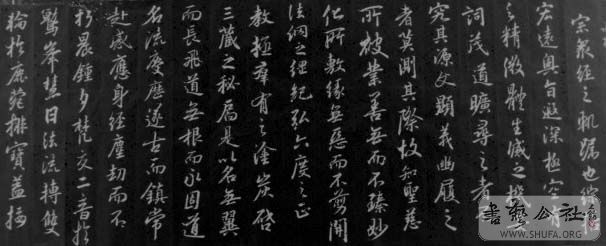 宗眾經之軌躅也綜
宏遠奧旨遐深極空
之精微體生滅之機
詞茂道曠尋之者
究其源文顯義幽履之
者莫測其際故知聖慈
所被業善無而不臻妙
化所敷緣無惡而不剪開
法網之綱紀弘六度之正
教拯群有之塗炭啟
三藏之秘扃是以名無翼
而長飛道無根而永固道
名流慶歷遂古而鎮常
赴感應身經塵劫而不
朽晨鐘夕梵交二音於
鷲峯慧日法流轉雙
輪於鹿菀排寶蓋接
書藝公社
WWW.SHUFA.ORG